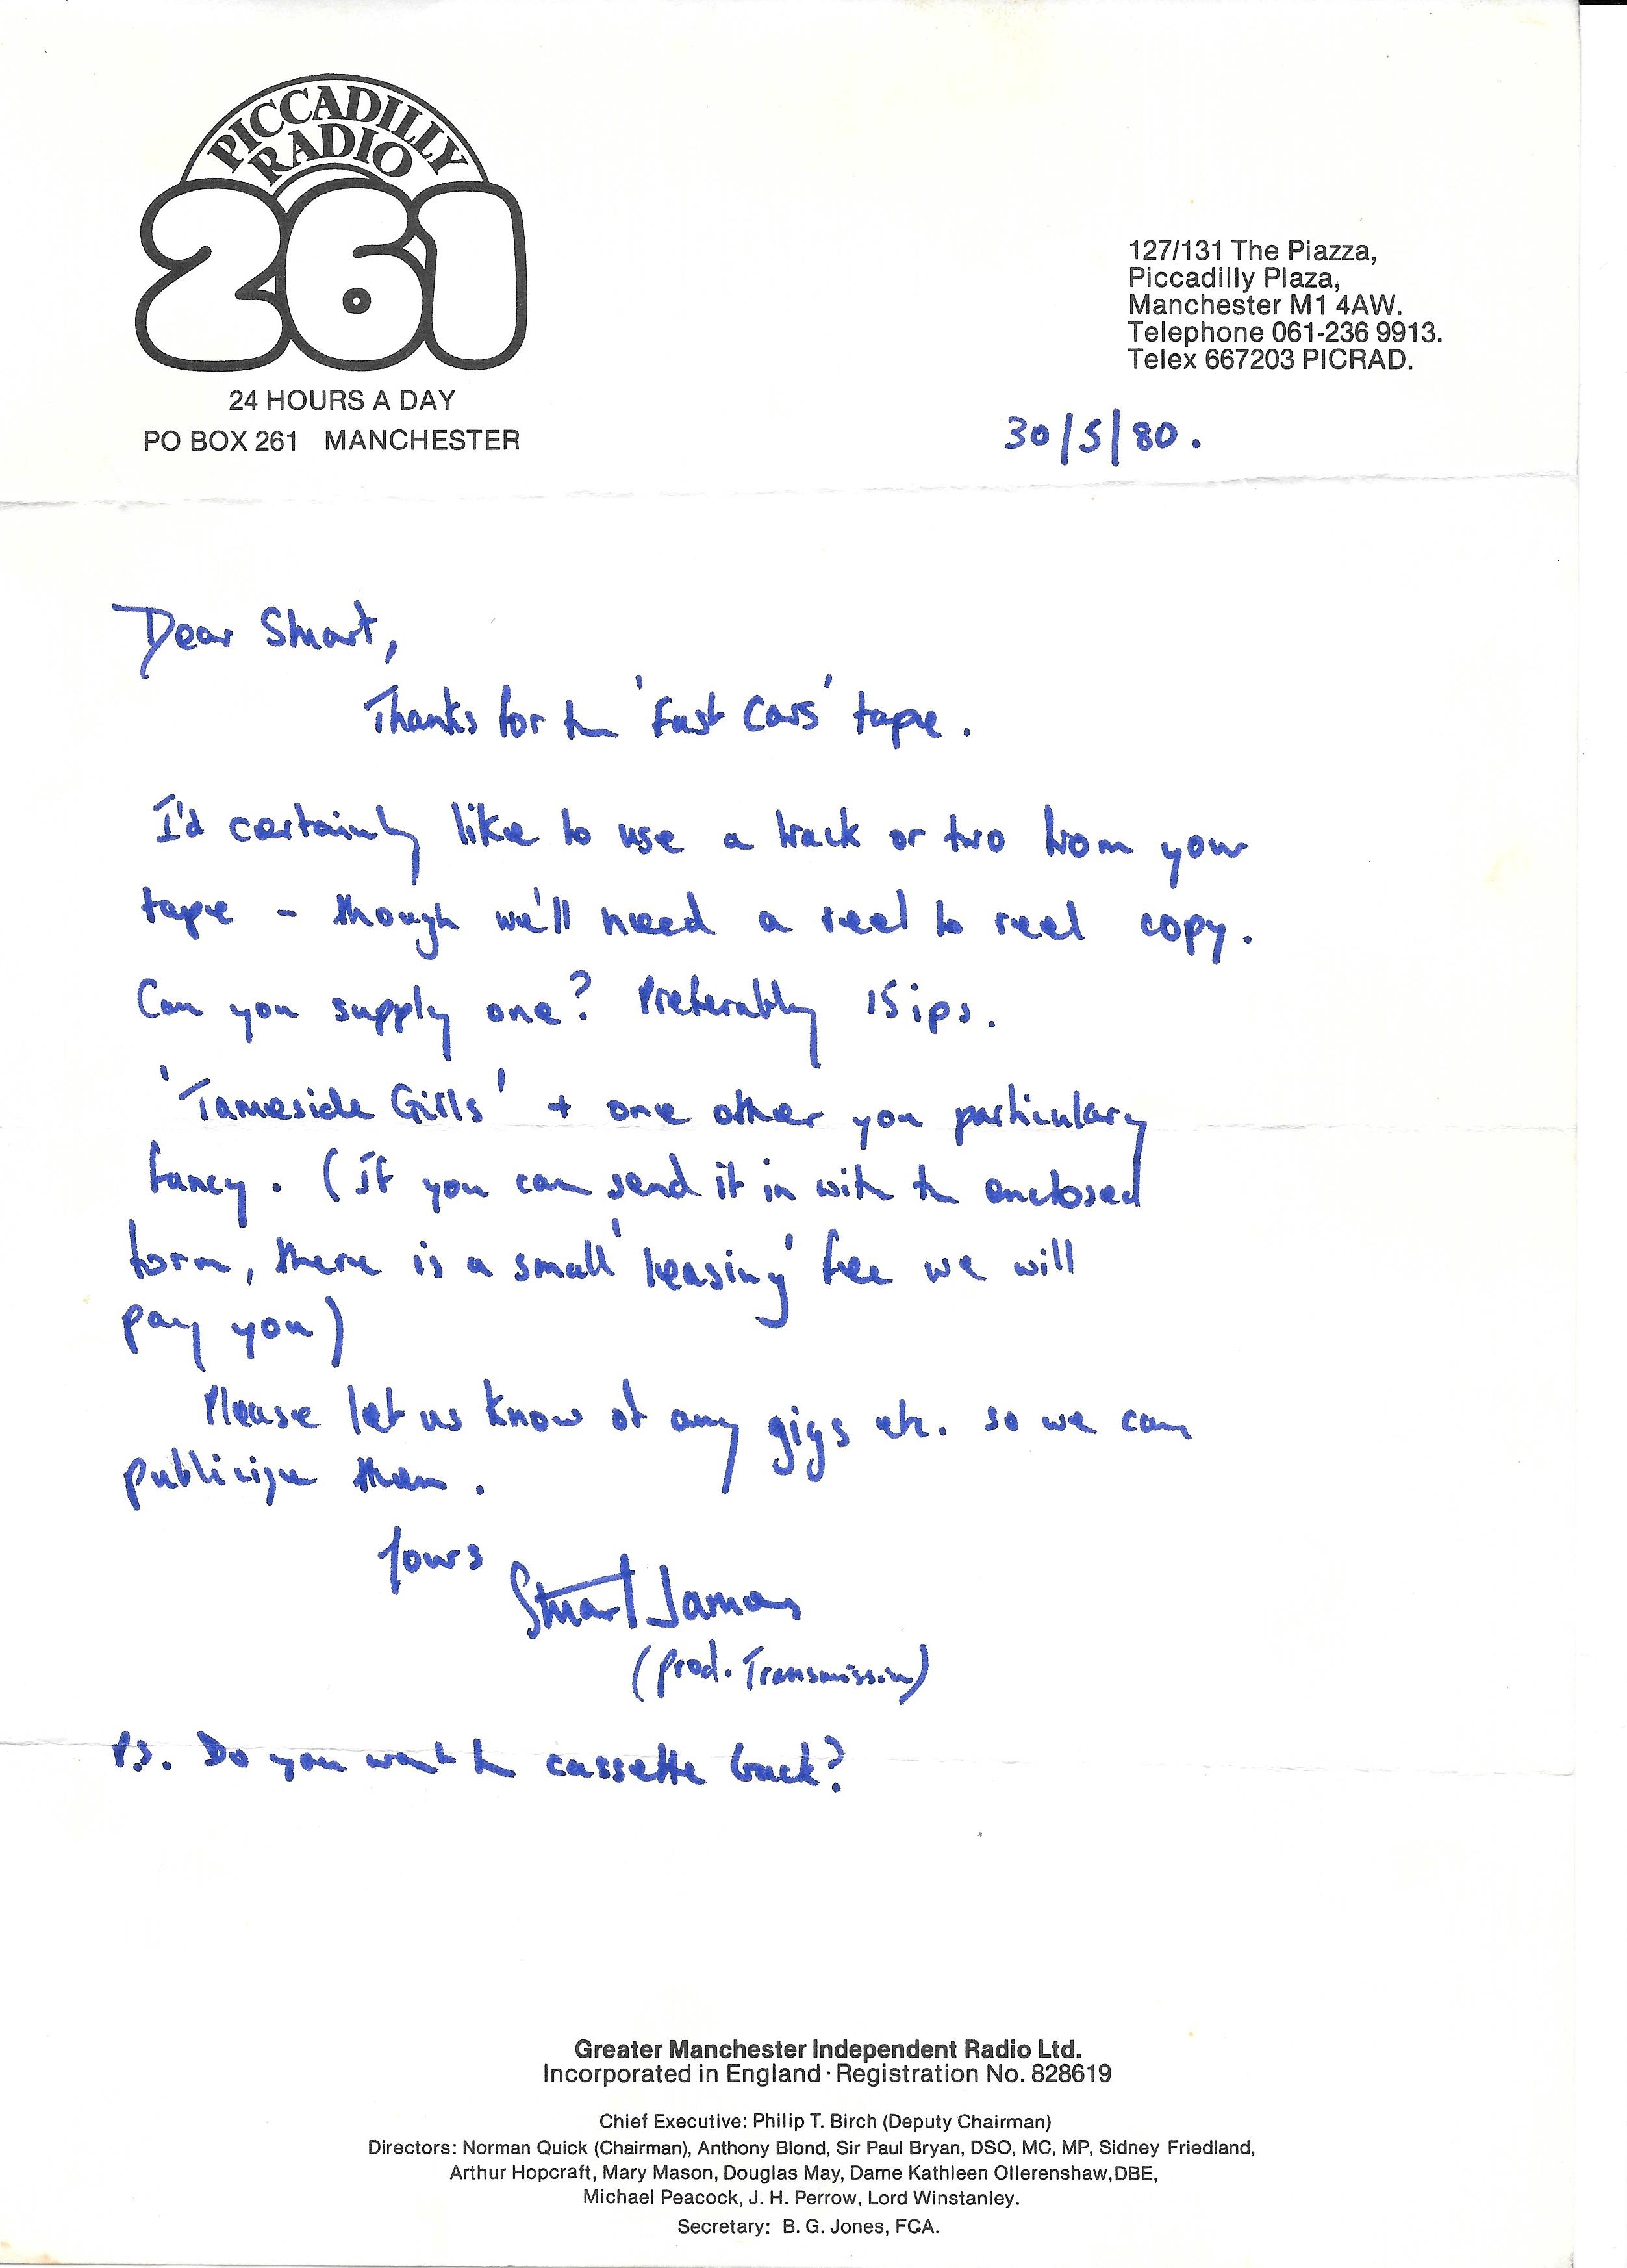 PICCADILLY
RADIO
261
24 HOURS A DAY
PO BOX 261 MANCHESTER
127/131 The Piazza,
Piccadilly Plaza,
Manchester M1 4AW.
Telephone 061-236 9913.
Telex 667203 PICRAD.
30/5/80.
Dear Stuart,
Thanks for the 'Fast Cars' tape.
I'd certainly like to use a track or two from your
tape - though we'll need a reel to reel copy.
Can you supply one? Preferably 15 ips.
'Tameside Girls' + one other you particulary
fancy. (If you can send it in with the enclosed
form, there is a small 'leasing' fee we will
pay you)
Please let us know of any gigs etc. so we can
publicize them.
Yours
Stuart James
(Prod. Transmission)
P.S. Do you want the cassette back?
Greater Manchester Independent Radio Ltd.
Incorporated in England · Registration No. 828619
Chief Executive: Philip T. Birch (Deputy Chairman)
Directors: Norman Quick (Chairman), Anthony Blond, Sir Paul Bryan, DSO, MC, MP, Sidney Friedland,
Arthur Hopcraft, Mary Mason, Douglas May, Dame Kathleen Ollerenshaw, DBE,
Michael Peacock, J. H. Perrow, Lord Winstanley.
Secretary: B. G. Jones, FCA.